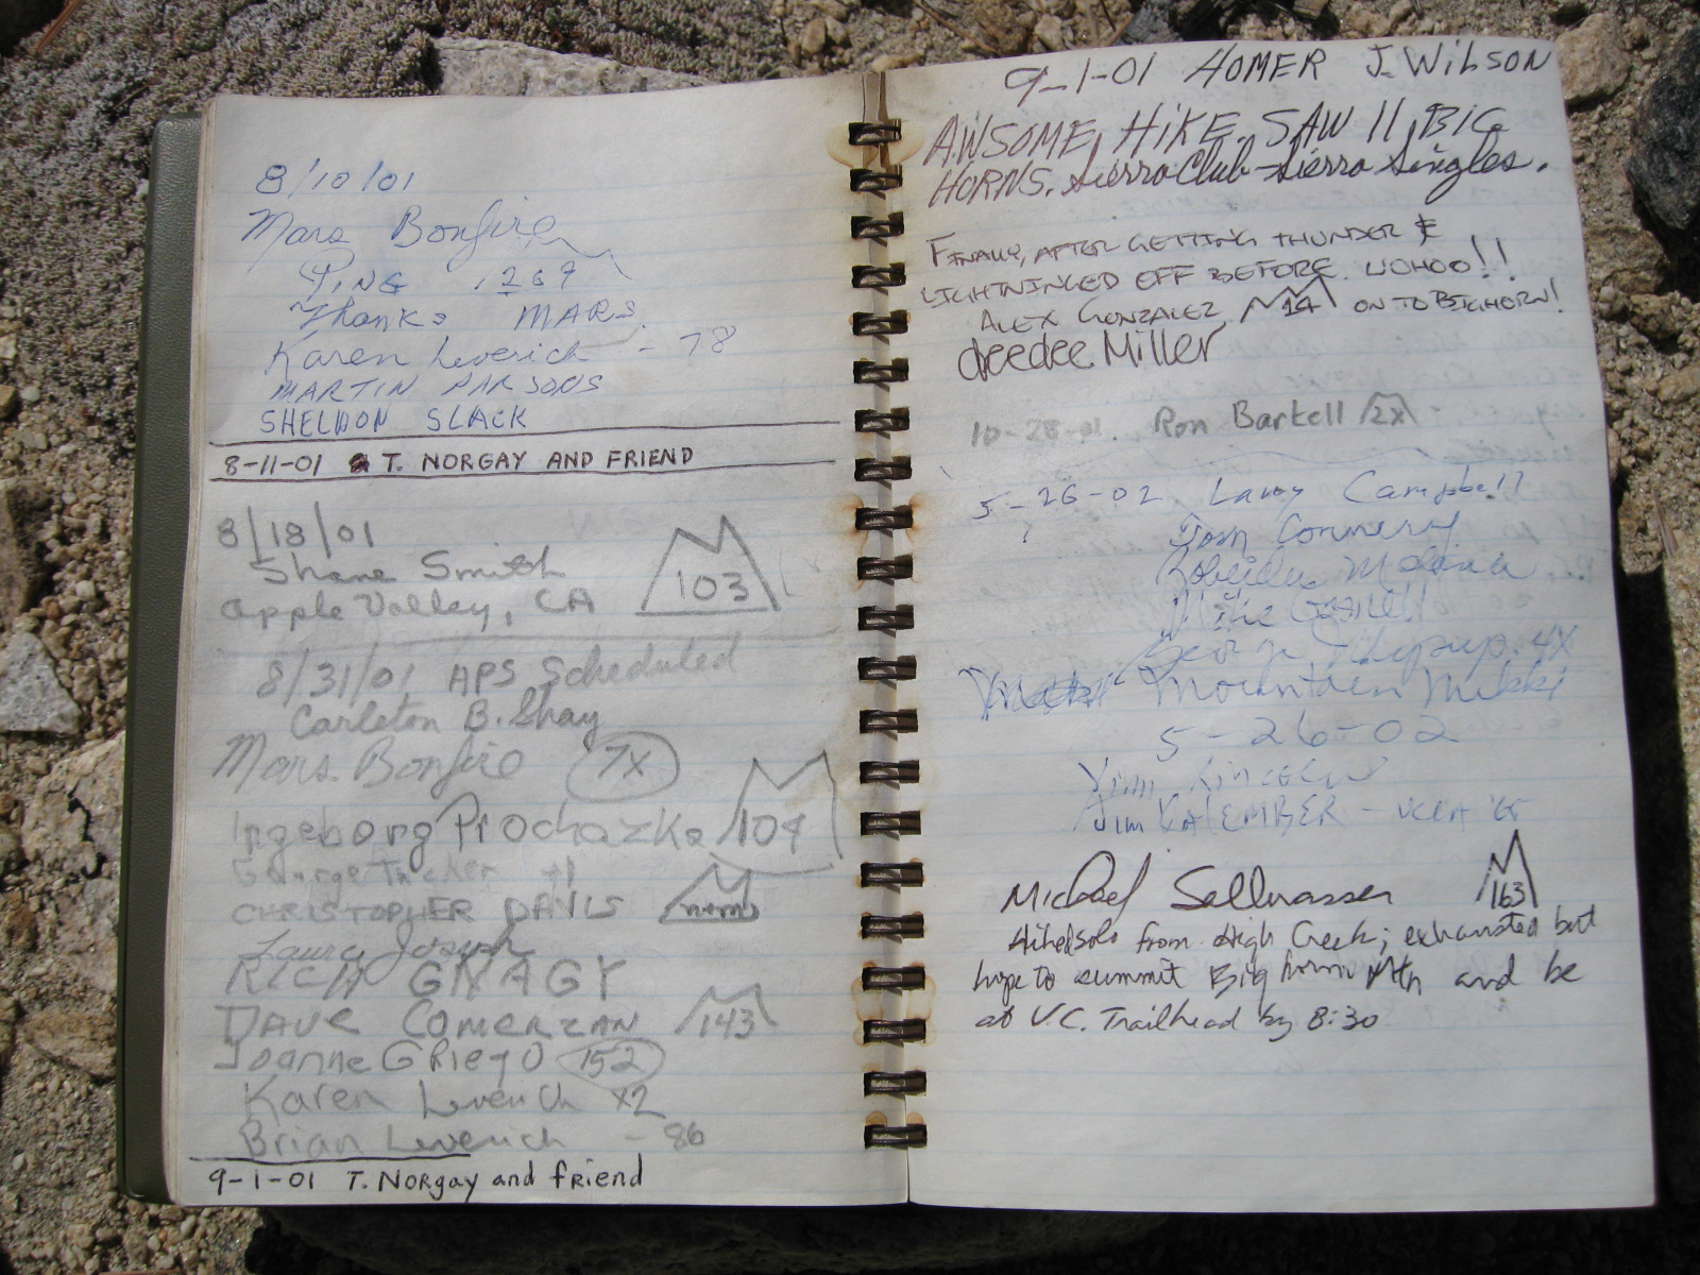 8/10/01
Mars Bonfire
PING 269
Thanks MARS.
Karen Leverich - 78
MARTIN PARSONS
SHELDON SLACK
8-11-01 T. NORGAY AND FRIEND
8/18/01
Shane Smith
Apple Valley, CA 103
8/31/01 APS Scheduled
Carleton B. Shay
Mars Bonfire 7X
Ingeborg Prochazka 109
George Tucker +1
CHRISTOPHER DAVIS
Laura Joseph
RICH GNAGY
DAVE COMERZAN 143
Joanne GRiego 152
Karen Leverich X2
Brian Leverich - 86
9-1-01 T. NORgay and fRiend
9-1-01 HOMER J. WILSON
AWSOME HIKE. SAW 11 BIG
HORNS. Sierra Club - Sierra Singles.
FINALLY, AFTER GETTING THUNDER &
LIGHTNINGED OFF BEFORE. WOHOO!!
ALEX GONZALEZ 14 ON TO BIGHORN!
deedee Miller
10-28-01. Ron Bartell 2X
5-26-02 Larry Campbell
Mike
4X
Mountain Mikki
5-26-02
Jim
Jim KALEMBER - UCLA '65
Michael Sellnasser 163
Hiked solo from High Creek; exhausted but
hope to summit Big horn Mtn and be
at V.C. Trailhead by 8:30